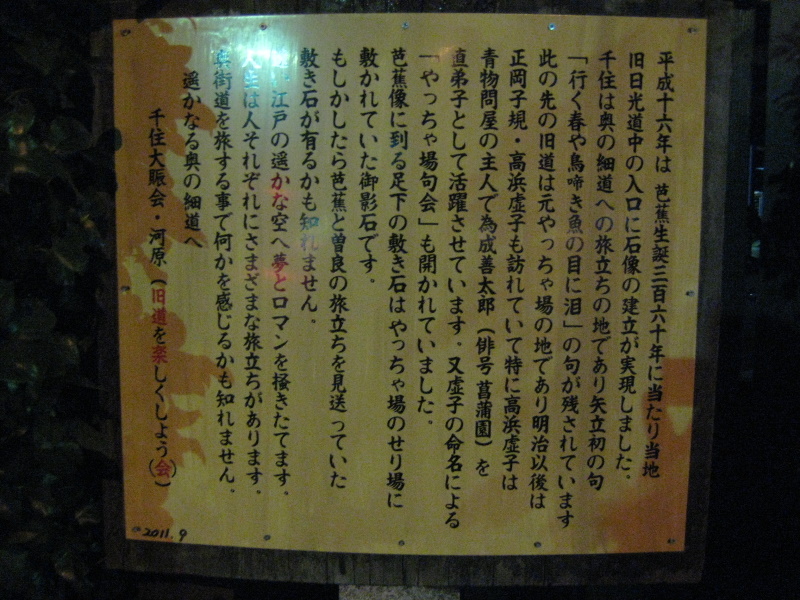 平成十六年は 芭蕉生誕三百六十年に当たり当地
旧日光道中の入口に石像の建立が実現しました。
千住は奥の細道への旅立ちの地であり矢立初の句
「行く春や鳥啼き魚の目に泪」の句が残されています
此の先の旧道は元やっちゃ場の地であり明治以後は
正岡子規・高浜虚子も訪れていて特に高浜虚子は
青物問屋の主人で為成善太郎（俳号 菖蒲園）を
直弟子として活躍させています。又虚子の命名による
「やっちゃ場句会」も開かれていました。
芭蕉像に到る足下の敷き石はやっちゃ場のせり場に
敷かれていた御影石です。
もしかしたら芭蕉と曽良の旅立ちを見送っていた
敷き石が有るかも知れません。
江戸の遥かな空へ夢とロマンを掻きたてます。
人生は人それぞれにさまざまな旅立ちがあります。
奥街道を旅する事で何かを感じるかも知れません。
遥かなる奥の細道へ
千住大賑会・河原（旧道を楽しくしよう(会)）
2011.9